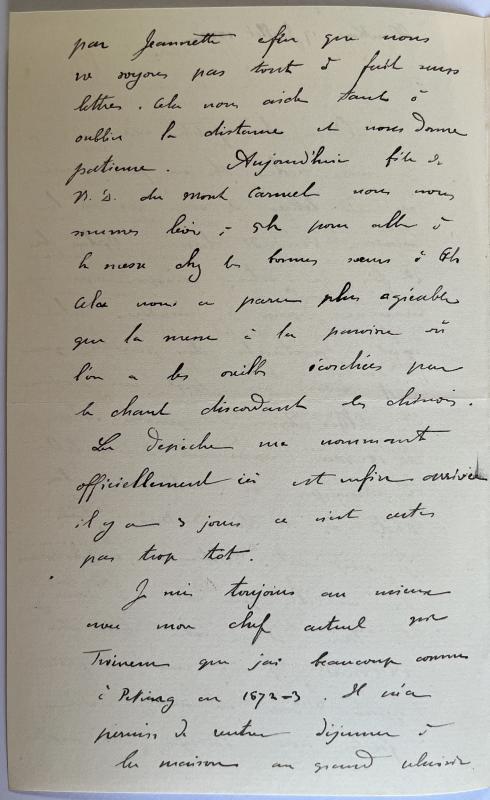 par Jeannette afin que nous
ne soyons pas tout à fait sans
lettres. Cela nous aide tant à
oublier la distance et nous donne
patience. Aujourd'hui fête de
N. D. du Mont Carmel nous nous
sommes levés à 5h pour aller à
la messe chez les bonnes sœurs à 6h
Cela nous a paru plus agréable
que la messe à la paroisse où
l'on a les oreilles écorchées par
le chant discordant des chinois.
La dépêche me nommant
officiellement ici est enfin arrivée
il y a 3 jours ce n'est certes
pas trop tôt.
Je suis toujours au mieux
avec mon chef actuel
que j'ai beaucoup connu
à en 1872-3. Il m'a
permis de rentrer déjeuner à
la maison au grand plaisir